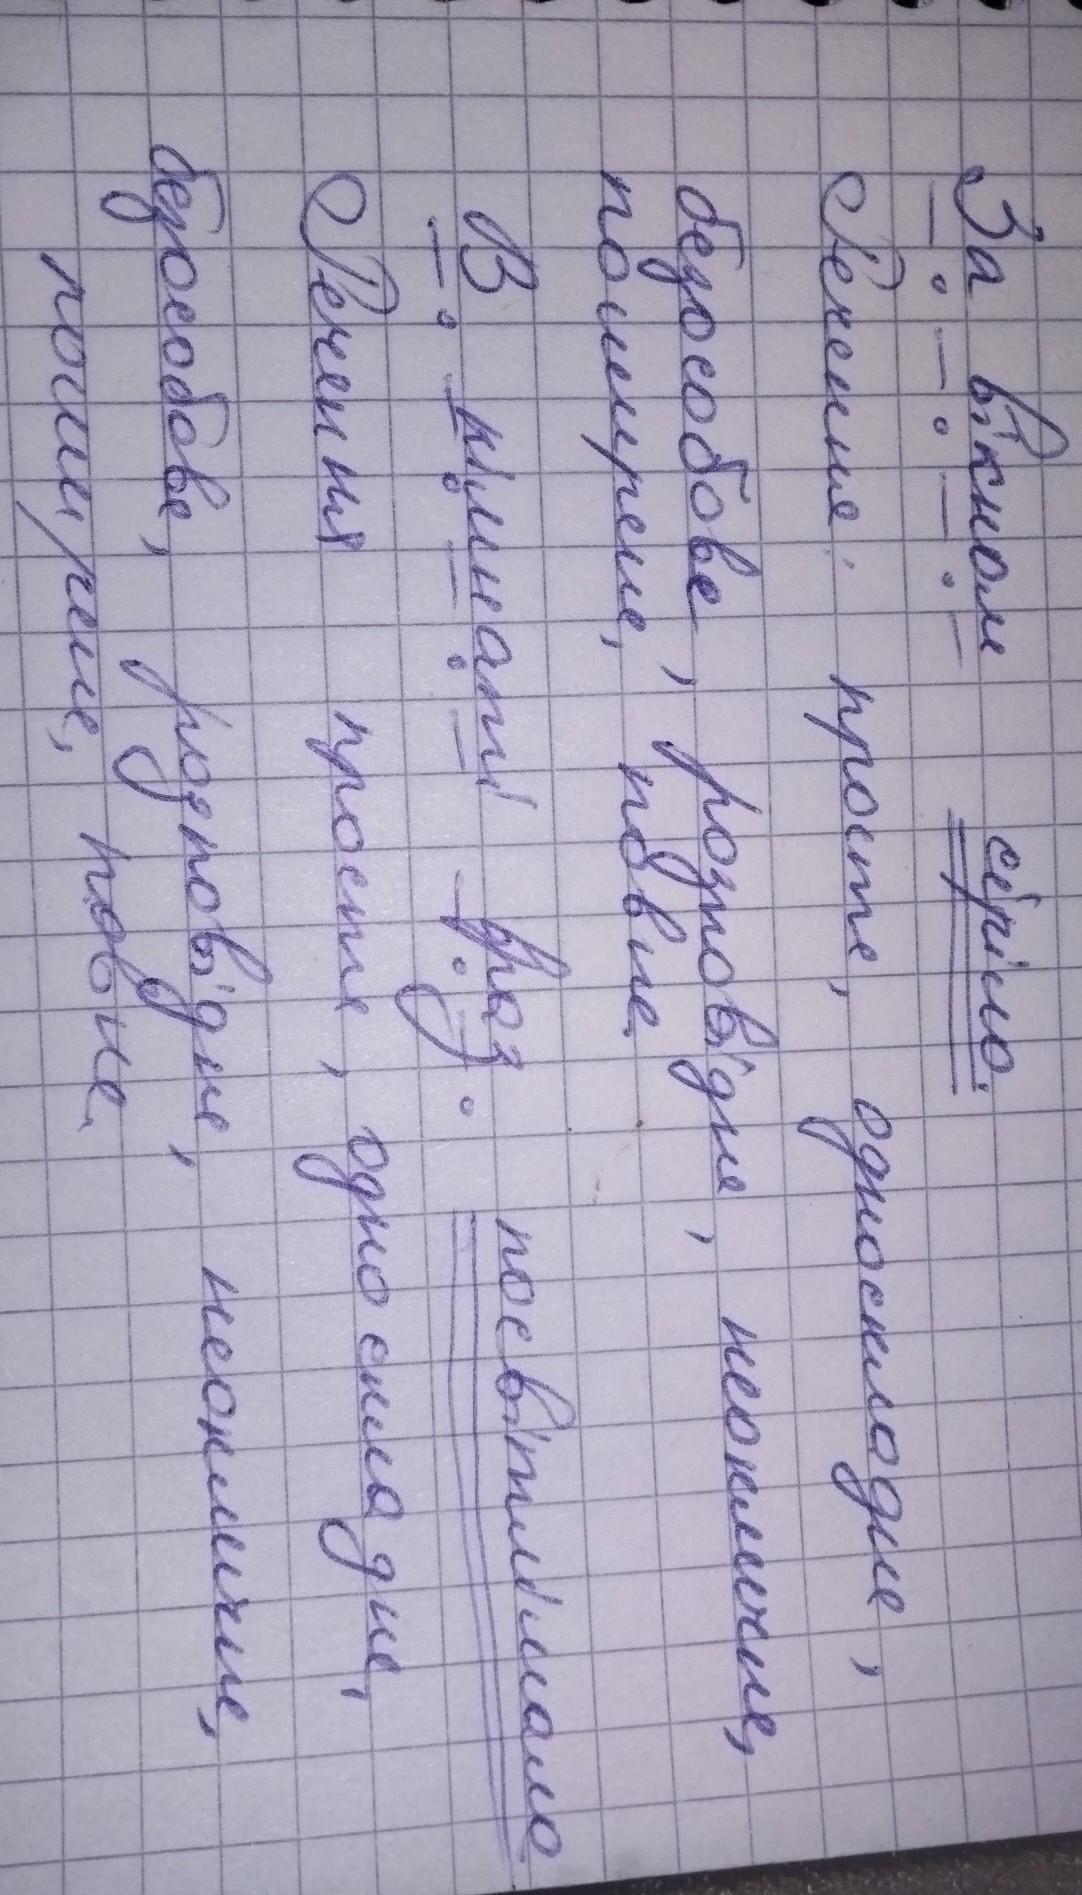 За вікном сіріло.
Речення: просте, односкладне,
безособове, розповідне, неокличне,
поширене, повне.
В кімнаті враз посвітлішало
Речення просте, односкладне,
безособове, розповідне, неокличне,
поширене, повне.